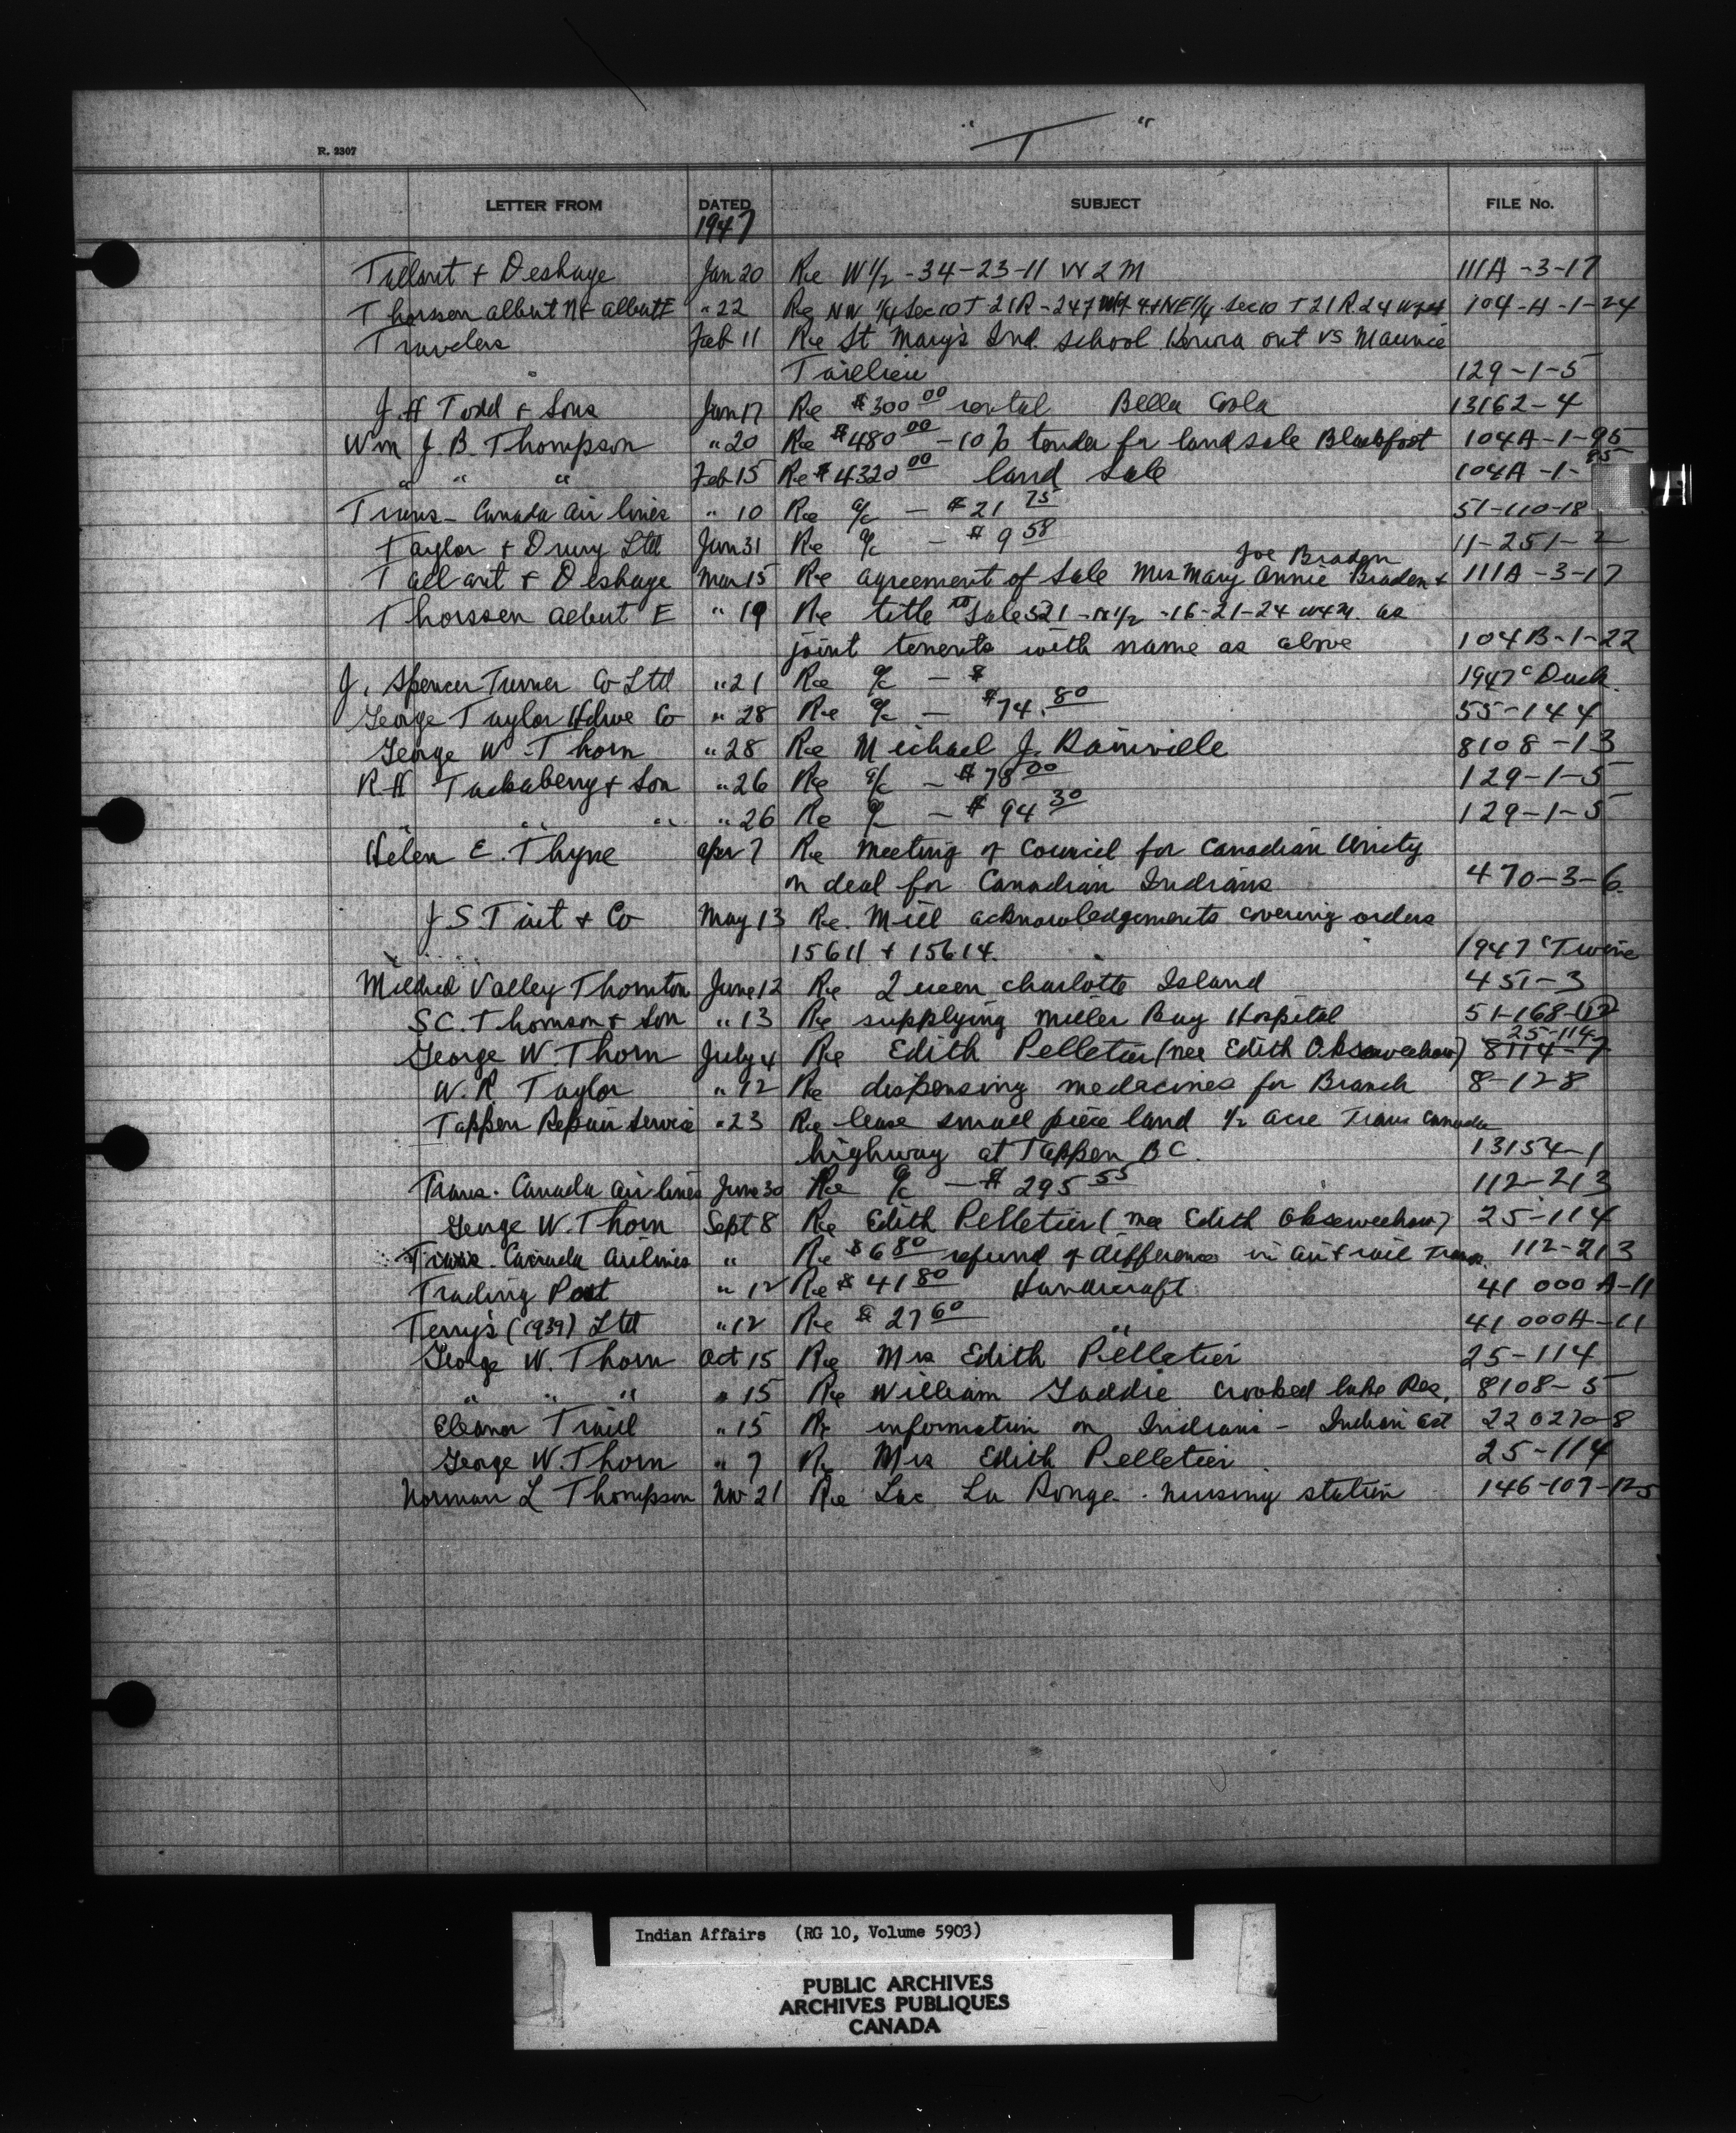 "T"
R. 2307
LETTER FROM DATED SUBJECT FILE No.
1947
Tallant & Deshaye Jan 20 Re W 1/2 - 34-23-11 W 2 M 111A-3-17
Thorssen Albert N & Albert E " 22 Re NW 1/4 Sec 10 T 21 R - 24 & NE 1/4 Sec 10 T 21 R 24 104-A-1-24
Travelers Feb 11 Re St Mary's Ind. School Kenora ont vs Maurice
Taillieu 129-1-5
J. H Todd & Sons Jan 17 Re $300 00 rental Bella Coola 13162-4
Wm J. B. Thompson " 20 Re $480 00 - 10% tender for land sale Blackfoot 104A-1-95
" " " Feb 15 Re $4320 00 land sale 104A-1-
Trans-Canada Air lines " 10 Re a/c - $21 75 51-110-18
Taylor & Drury Ltd Jan 31 Re a/c - $9 58 11-251-2
Joe Braden
Tallant & Deshaye Mar 15 Re agreement of sale Mrs Mary Annie Braden & 111A-3-17
Thorssen Albert E " 19 Re title to Sale 521 - N 1/2 - 16-21-24 W4M. as
joint tenents with name as above 104B-1-22
J. Spencer Turner Co Ltd " 21 Re a/c - $ 1947 "Duck
George Taylor Hdwe Co " 28 Re a/c - $74.80 55-144
George W. Thorn " 28 Re Michael J. Rainville 8108-13
R H Tackaberry & Son " 26 Re a/c - $78 00 129-1-5
" " " " 26 Re a/c - $94 30 129-1-5
Helen E. Thyne Apr 7 Re Meeting of Council for Canadian Unity
on deal for Canadian Indians 470-3-6
J S Tait & Co May 13 Re. Mill acknowledgements covering orders
15611 & 15614. 1947 "Twine
Mildred Valley Thornton June 12 Re Queen Charlotte Island 451-3
S C. Thomson & Son " 13 Re supplying Miller Bay Hospital 51-168-(12)
25-114
George W Thorn July 4 Re Edith Pelletier (nee Edith Obsewechow) 8114-7
W. R. Taylor " 12 Re dispensing medacines for Branch 8-12-8
Tappen Repair Service " 23 Re lease small piece land 1/2 acre Trans Canada
highway at Tappen B C. 13154-1
Trans. Canada Air lines June 30 Re a/c - $295 55 112-213
George W. Thorn Sept 8 Re Edith Pelletier (nee Edith Obsewechow) 25-114
Trans. Canada Airlines " Re $6 80 refund of difference in air & rail Trans. 112-213
Trading Post " 12 Re $41 80 Handicraft 41 000 A-11
Terry's (1939) Ltd " 12 Re $27 60 " 41 000A-11
George W. Thorn Oct 15 Re Mrs Edith Pelletier 25-114
" " " " 15 Re William Gaddie Crooked lake Res. 8108-5
Eleanor Traill " 15 Re information on Indians - Indian Act 220270-8
George W. Thorn " 7 Re Mrs Edith Pelletier 25-114
Norman L Thompson Nov 21 Re Lac La Ronge. nursing station 146-107-125
Indian Affairs (RG 10, Volume 5903)
PUBLIC ARCHIVES
ARCHIVES PUBLIQUES
CANADA